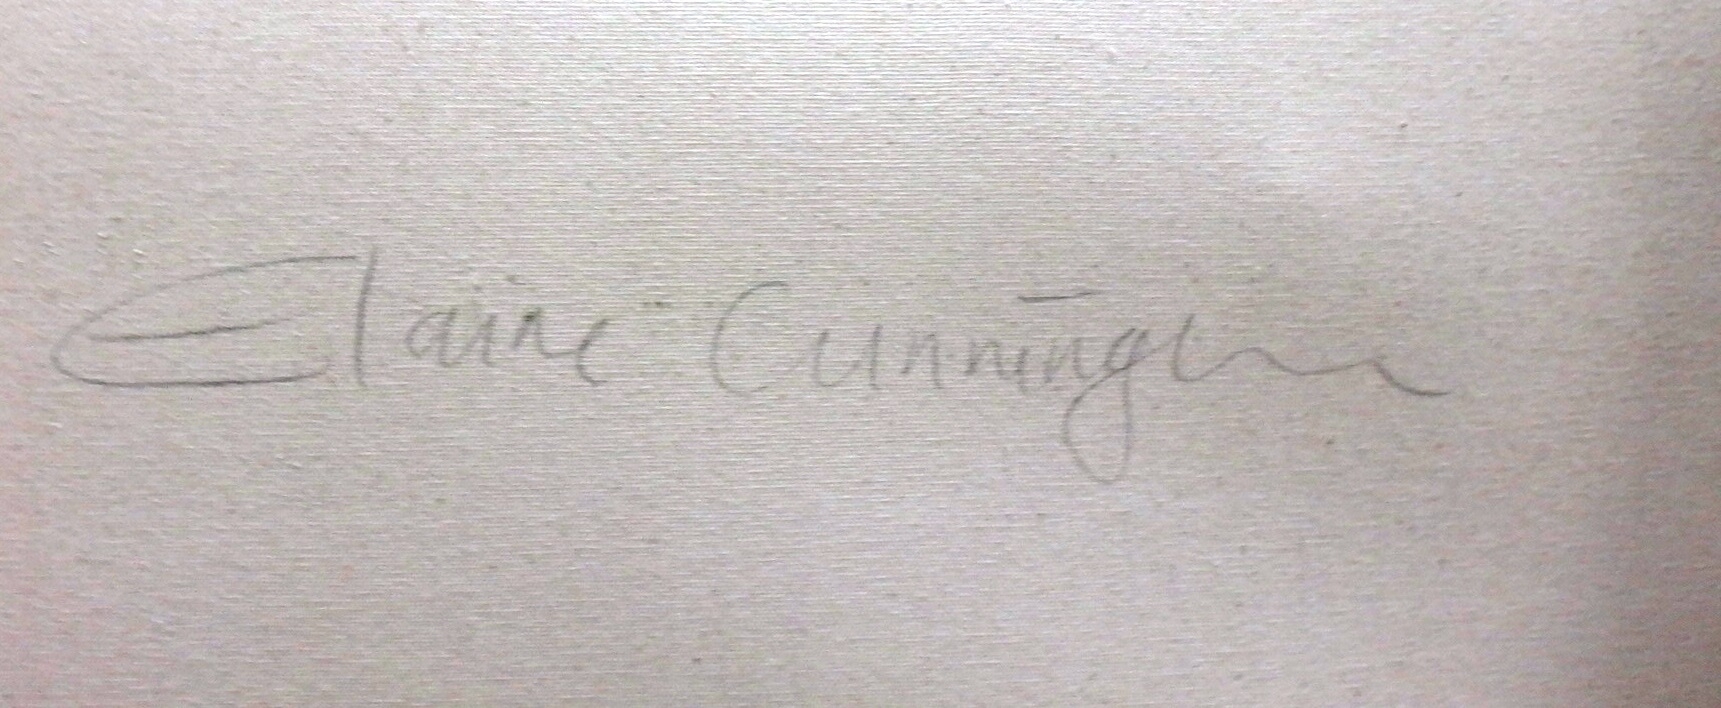 Elaine Cunningham